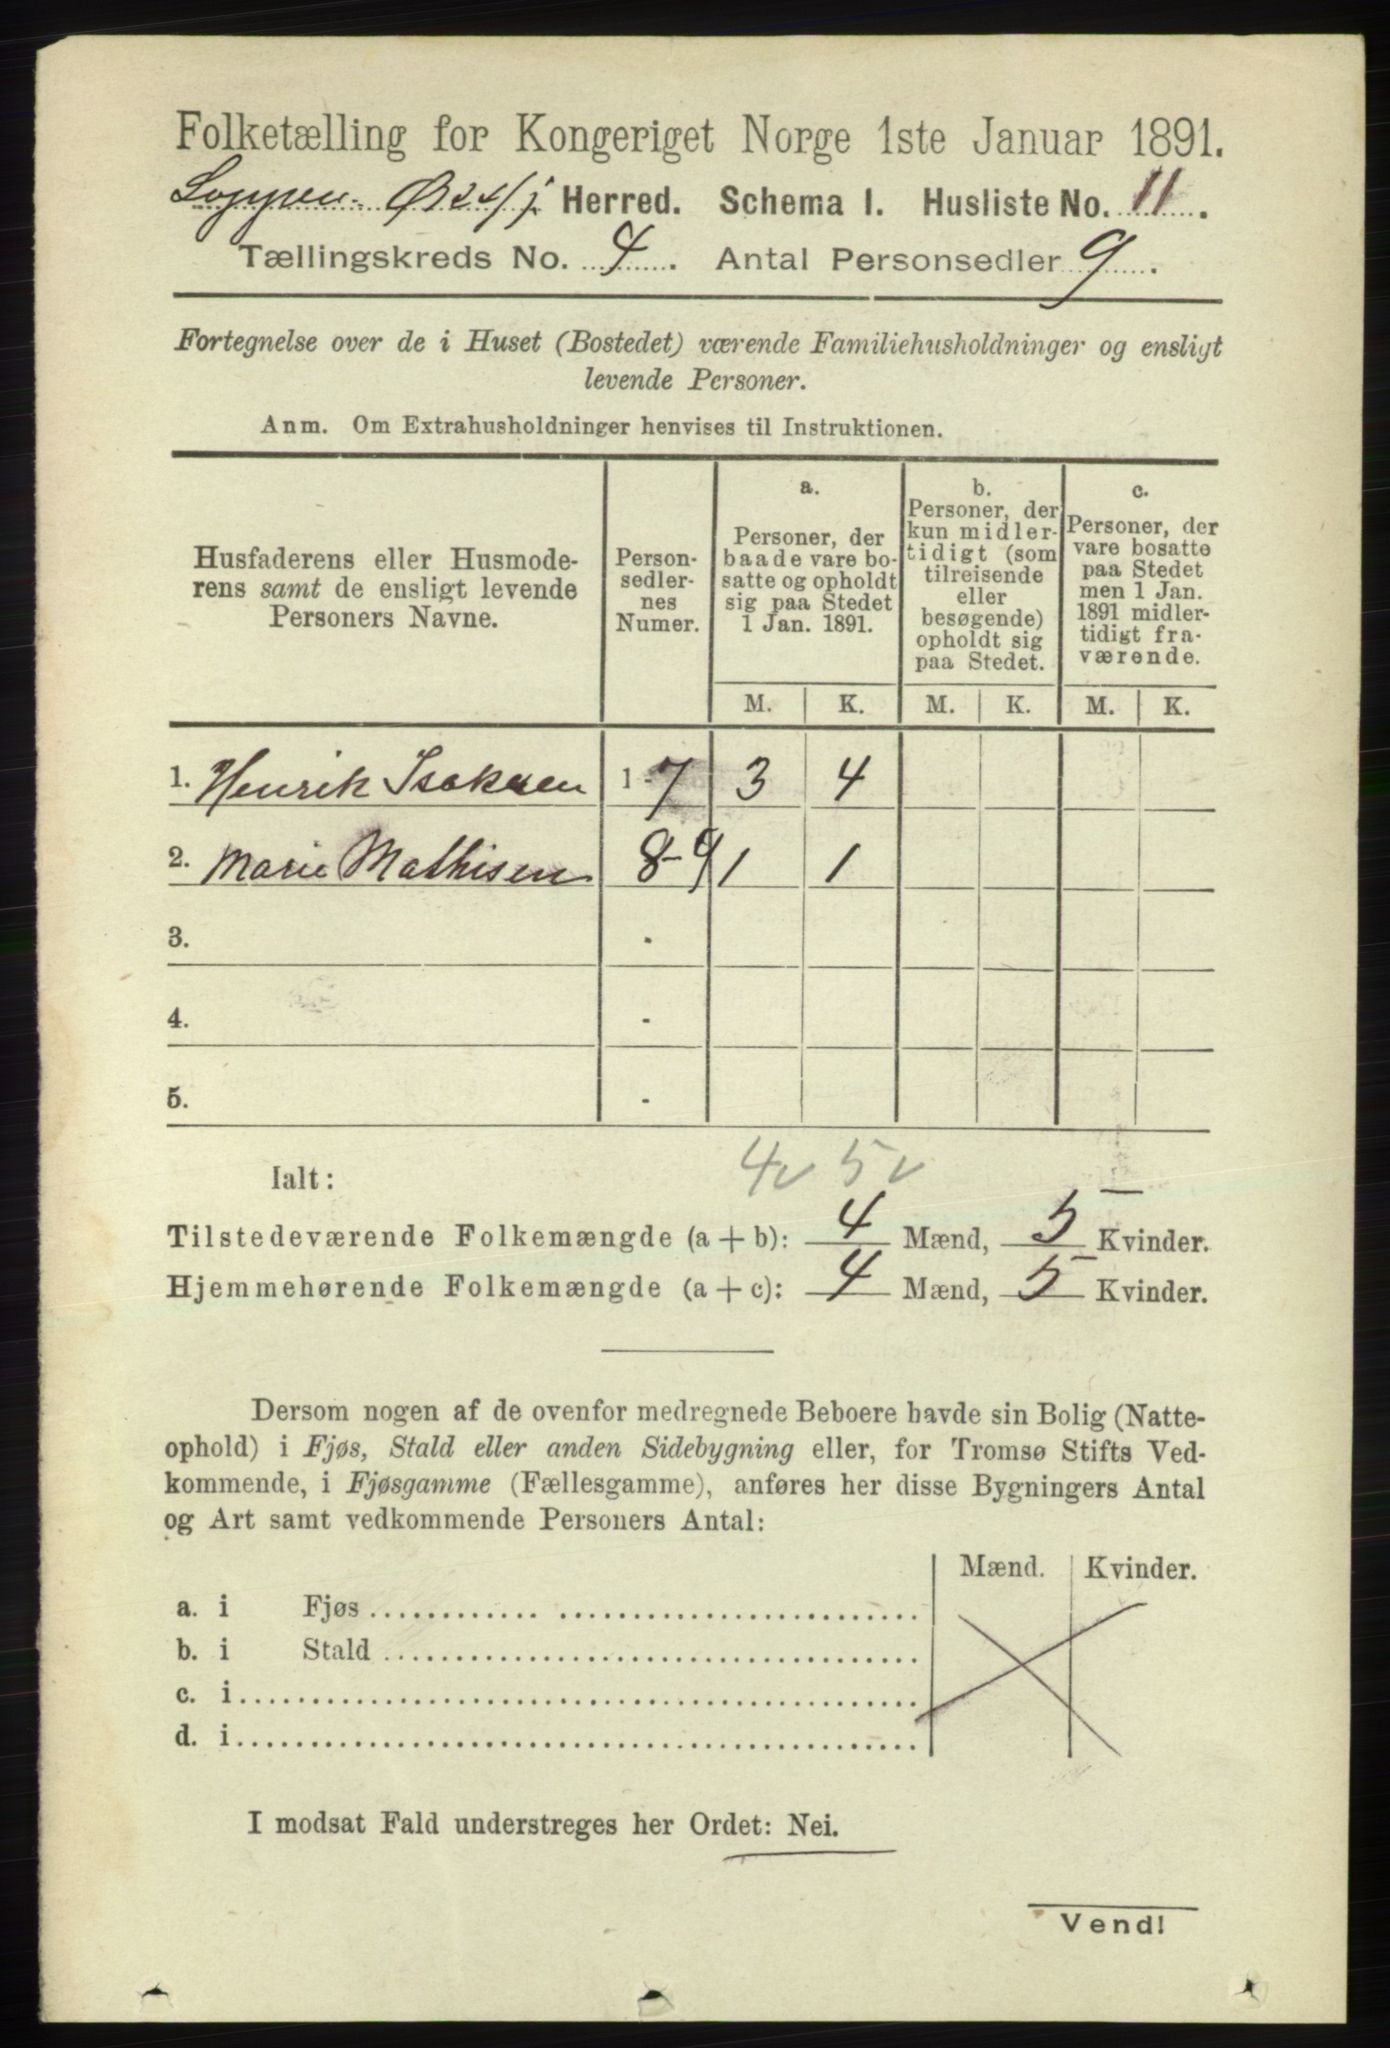 Folketælling for Kongeriget Norge 1ste Januar 1891.
Loppen Herred. Schema I. Husliste No. 11.
Tællingskreds No. 4. Antal Personsedler 9.
Fortegnelse over de i Huset (Bostedet) værende Familiehusholdninger og ensligt
levende Personer.
Anm. Om Extrahusholdninger henvises til Instruktionen.
Husfaderens eller Husmode-
rens samt de ensligt levende
Personers Navne.
Person-
sedler-
nes
Numer.
a.
Personer, der
baade vare bo-
satte og opholdt
sig paa Stedet
1 Jan. 1891.
b.
Personer, der
kun midler-
tidigt (som
tilreisende
eller
besøgende)
opholdt sig
paa Stedet.
c.
Personer, der
vare bosatte
paa Stedet
men 1 Jan.
1891 midler-
tidigt fra-
værende.
M. K. M. K. M. K.
1. Henrik Isaksen 1-7 3 4
2. Marie Mathisen 8-9 1 1
3. -
4. -
5. -
4 v 5 v
Ialt:
Tilstedeværende Folkemængde (a + b): 4 Mænd, 5 Kvinder.
Hjemmehørende Folkemængde (a + c): 4 Mænd, 5 Kvinder.
Dersom nogen af de ovenfor medregnede Beboere havde sin Bolig (Natte-
ophold) i Fjøs, Stald eller anden Sidebygning eller, for Tromsø Stifts Ved-
kommende, i Fjøsgamme (Fællesgamme), anføres her disse Bygningers Antal
og Art samt vedkommende Personers Antal:
Mænd. Kvinder.
a. i Fjøs
b. i Stald
c. i
d. i
I modsat Fald understreges her Ordet: Nei.
Vend!